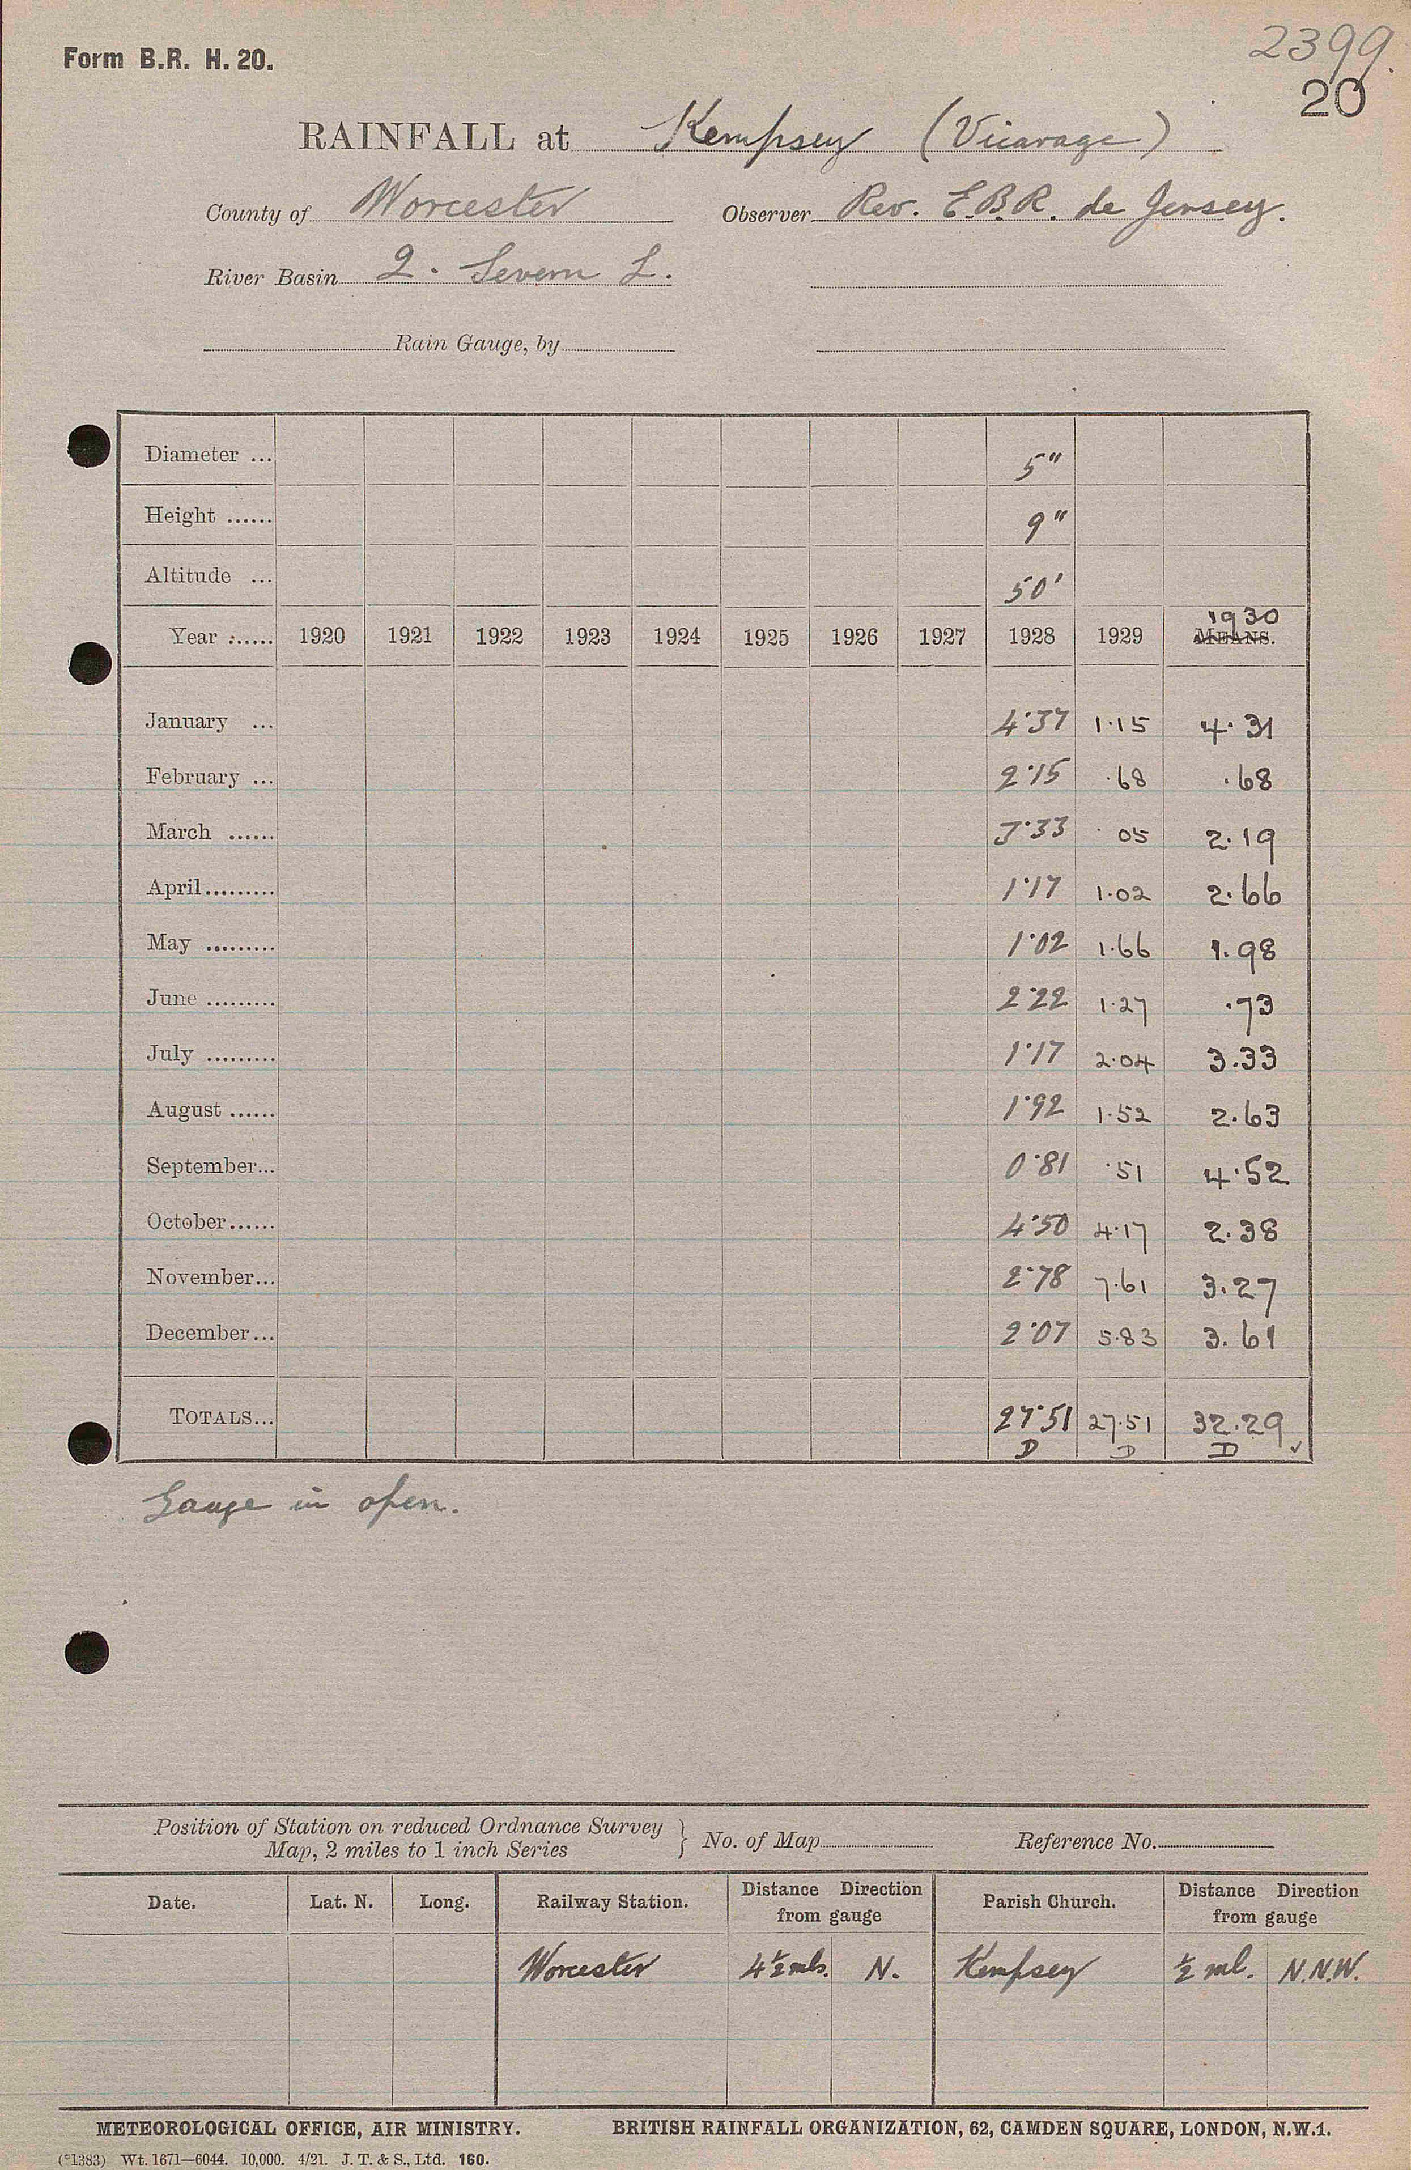 Form B.R. H. 20.
2399.
20
RAINFALL at Kempsey (Vicarage)
County of Worcester Observer Rev. E.B.R. de Jersey.
River Basin 2. Severn L.
Rain Gauge, by
Diameter ... 5"
Height ...... 9"
Altitude ... 50'
1930
Year ...... 1920 1921 1922 1923 1924 1925 1926 1927 1928 1929 MEANS.
January ... 4·37 1·15 4·31
February ... 2·15 ·68 ·68
March ...... 3·33 ·05 2·19
April......... 1·17 1·02 2·66
May ......... 1·02 1·66 1·98
June ......... 2·22 1·27 ·73
July ......... 1·17 2·04 3·33
August ...... 1·92 1·52 2·63
September... 0·81 ·51 4·52
October...... 4·50 4·17 2·38
November... 2·78 7·61 3·27
December... 2·07 5·83 3·61
TOTALS... 27·51 27·51 32·29
D D D ✓
Gauge in open.
Position of Station on reduced Ordnance Survey
Map, 2 miles to 1 inch Series } No. of Map Reference No.
Date. Lat. N. Long. Railway Station. Distance Direction from gauge Parish Church. Distance Direction from gauge
Worcester 4½ mls. N. Kempsey ½ ml. N.N.W.
METEOROLOGICAL OFFICE, AIR MINISTRY. BRITISH RAINFALL ORGANIZATION, 62, CAMDEN SQUARE, LONDON, N.W.1.
(*1383) Wt. 1671—6044. 10,000. 4/21. J. T. & S., Ltd. 160.